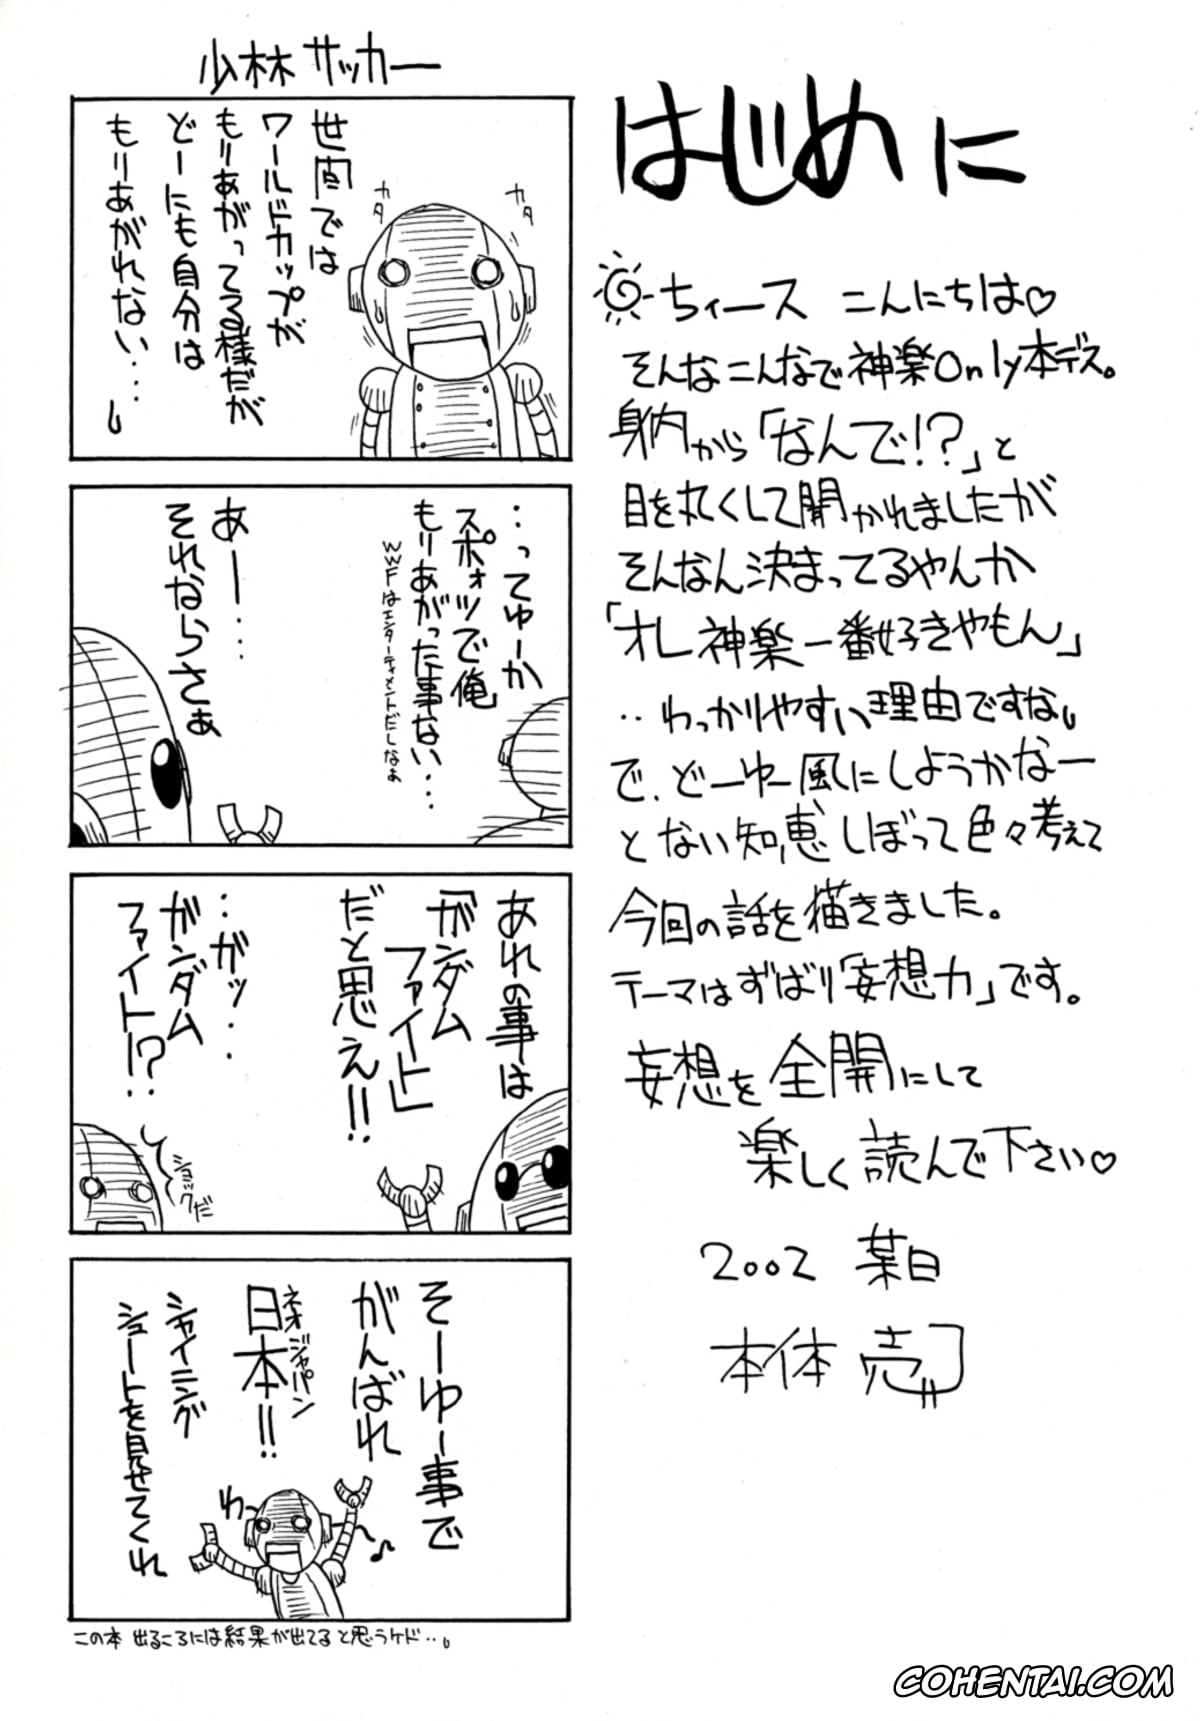 はじめに
ちィース こんにちは♡
そんなこんなで神楽Only本デス。
身内から「なんで!?」と
目を丸くして聞かれましたが
そんなん決まってるやんか
「オレ神楽一番好きやもん」
‥わっかりやすい理由ですな。
で、どーゆー風にしようかなー
とない知恵しぼって色々考えて
今回の話を描きました。
テーマはずばり「妄想力」です。
妄想を全開にして
楽しく読んで下さい♡
2002 某日
本体 売
少林サッカー
世間では
ワールドカップが
もりあがってる様だが
どーにも自分は
もりあがれない‥‥。
カタ
カタ
‥ってゆーか
スポォツで俺
もりあがった事ない‥‥
WWFはエンターティメントだしなぁ
あー‥‥
それならさぁ
あれの事は
「ガンダム
ファイト」
だと思え!!
‥ガッ‥
ガンダム
ファイト!?
ショックだ
そーゆー事で
がんばれ
日本!!
ネオジャパン
シャイニング
シュートを見せてくれ
わー
♪
この本 出るころには結果が出てると思うケド‥。
COHENTAI.COM